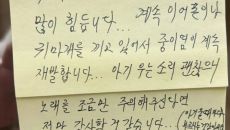 많이 힘듭니다... 계속 이어폰이나
귀마개를 끼고 있어서 중이염이 계속
재발합니다... 아기 우는소리 괜찮으니
노래를 조금만 주의해주신다면
정말 감사할 것 같습니다...